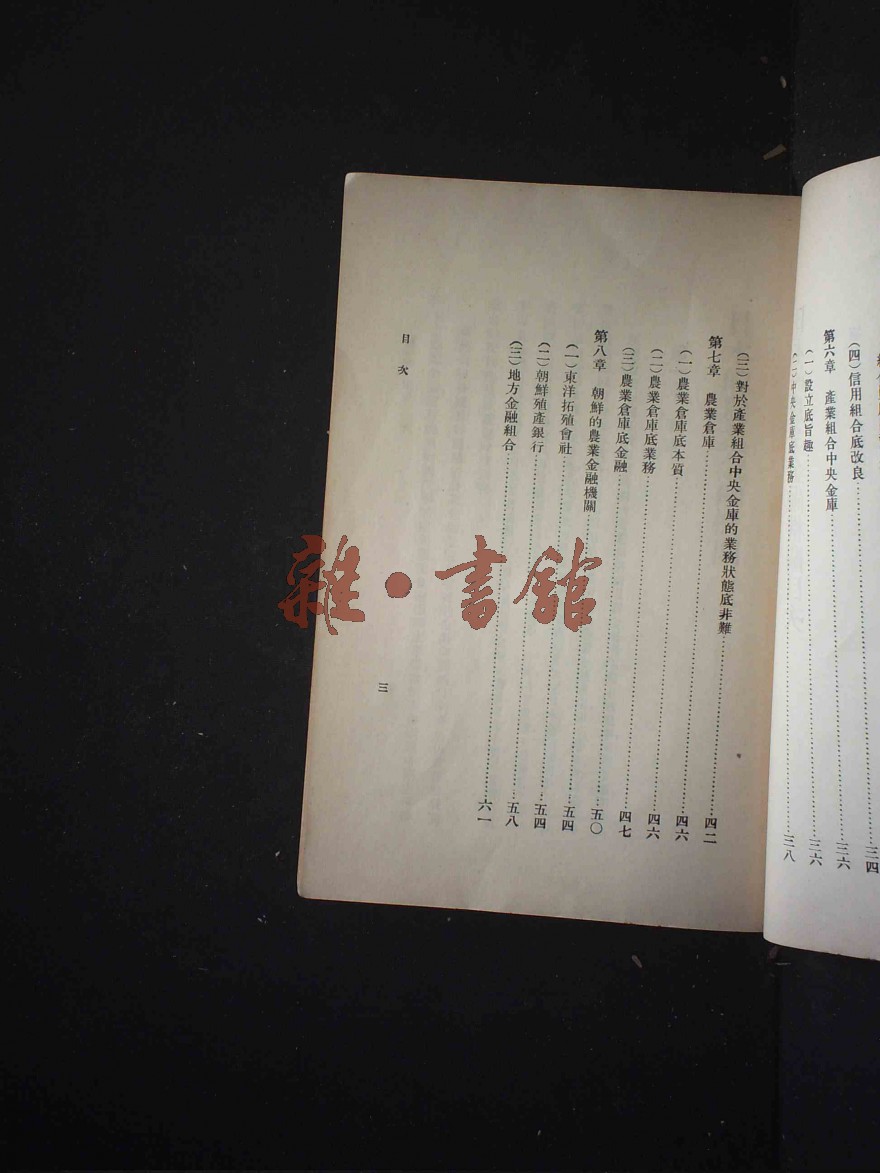 (四)信用組合底改良……三四
第六章　產業組合中央金庫……三六
(一)設立底旨趣……三六
(二)中央金庫底業務……三八
(三)對於產業組合中央金庫的業務狀態底非難……四二
第七章　農業倉庫……四六
(一)農業倉庫底本質……四六
(二)農業倉庫底業務……四七
(三)農業倉庫底金融……五〇
第八章　朝鮮的農業金融機關……五四
(一)東洋拓殖會社……五四
(二)朝鮮殖產銀行……五八
(三)地方金融組合……六一
目次
三
雜·書館